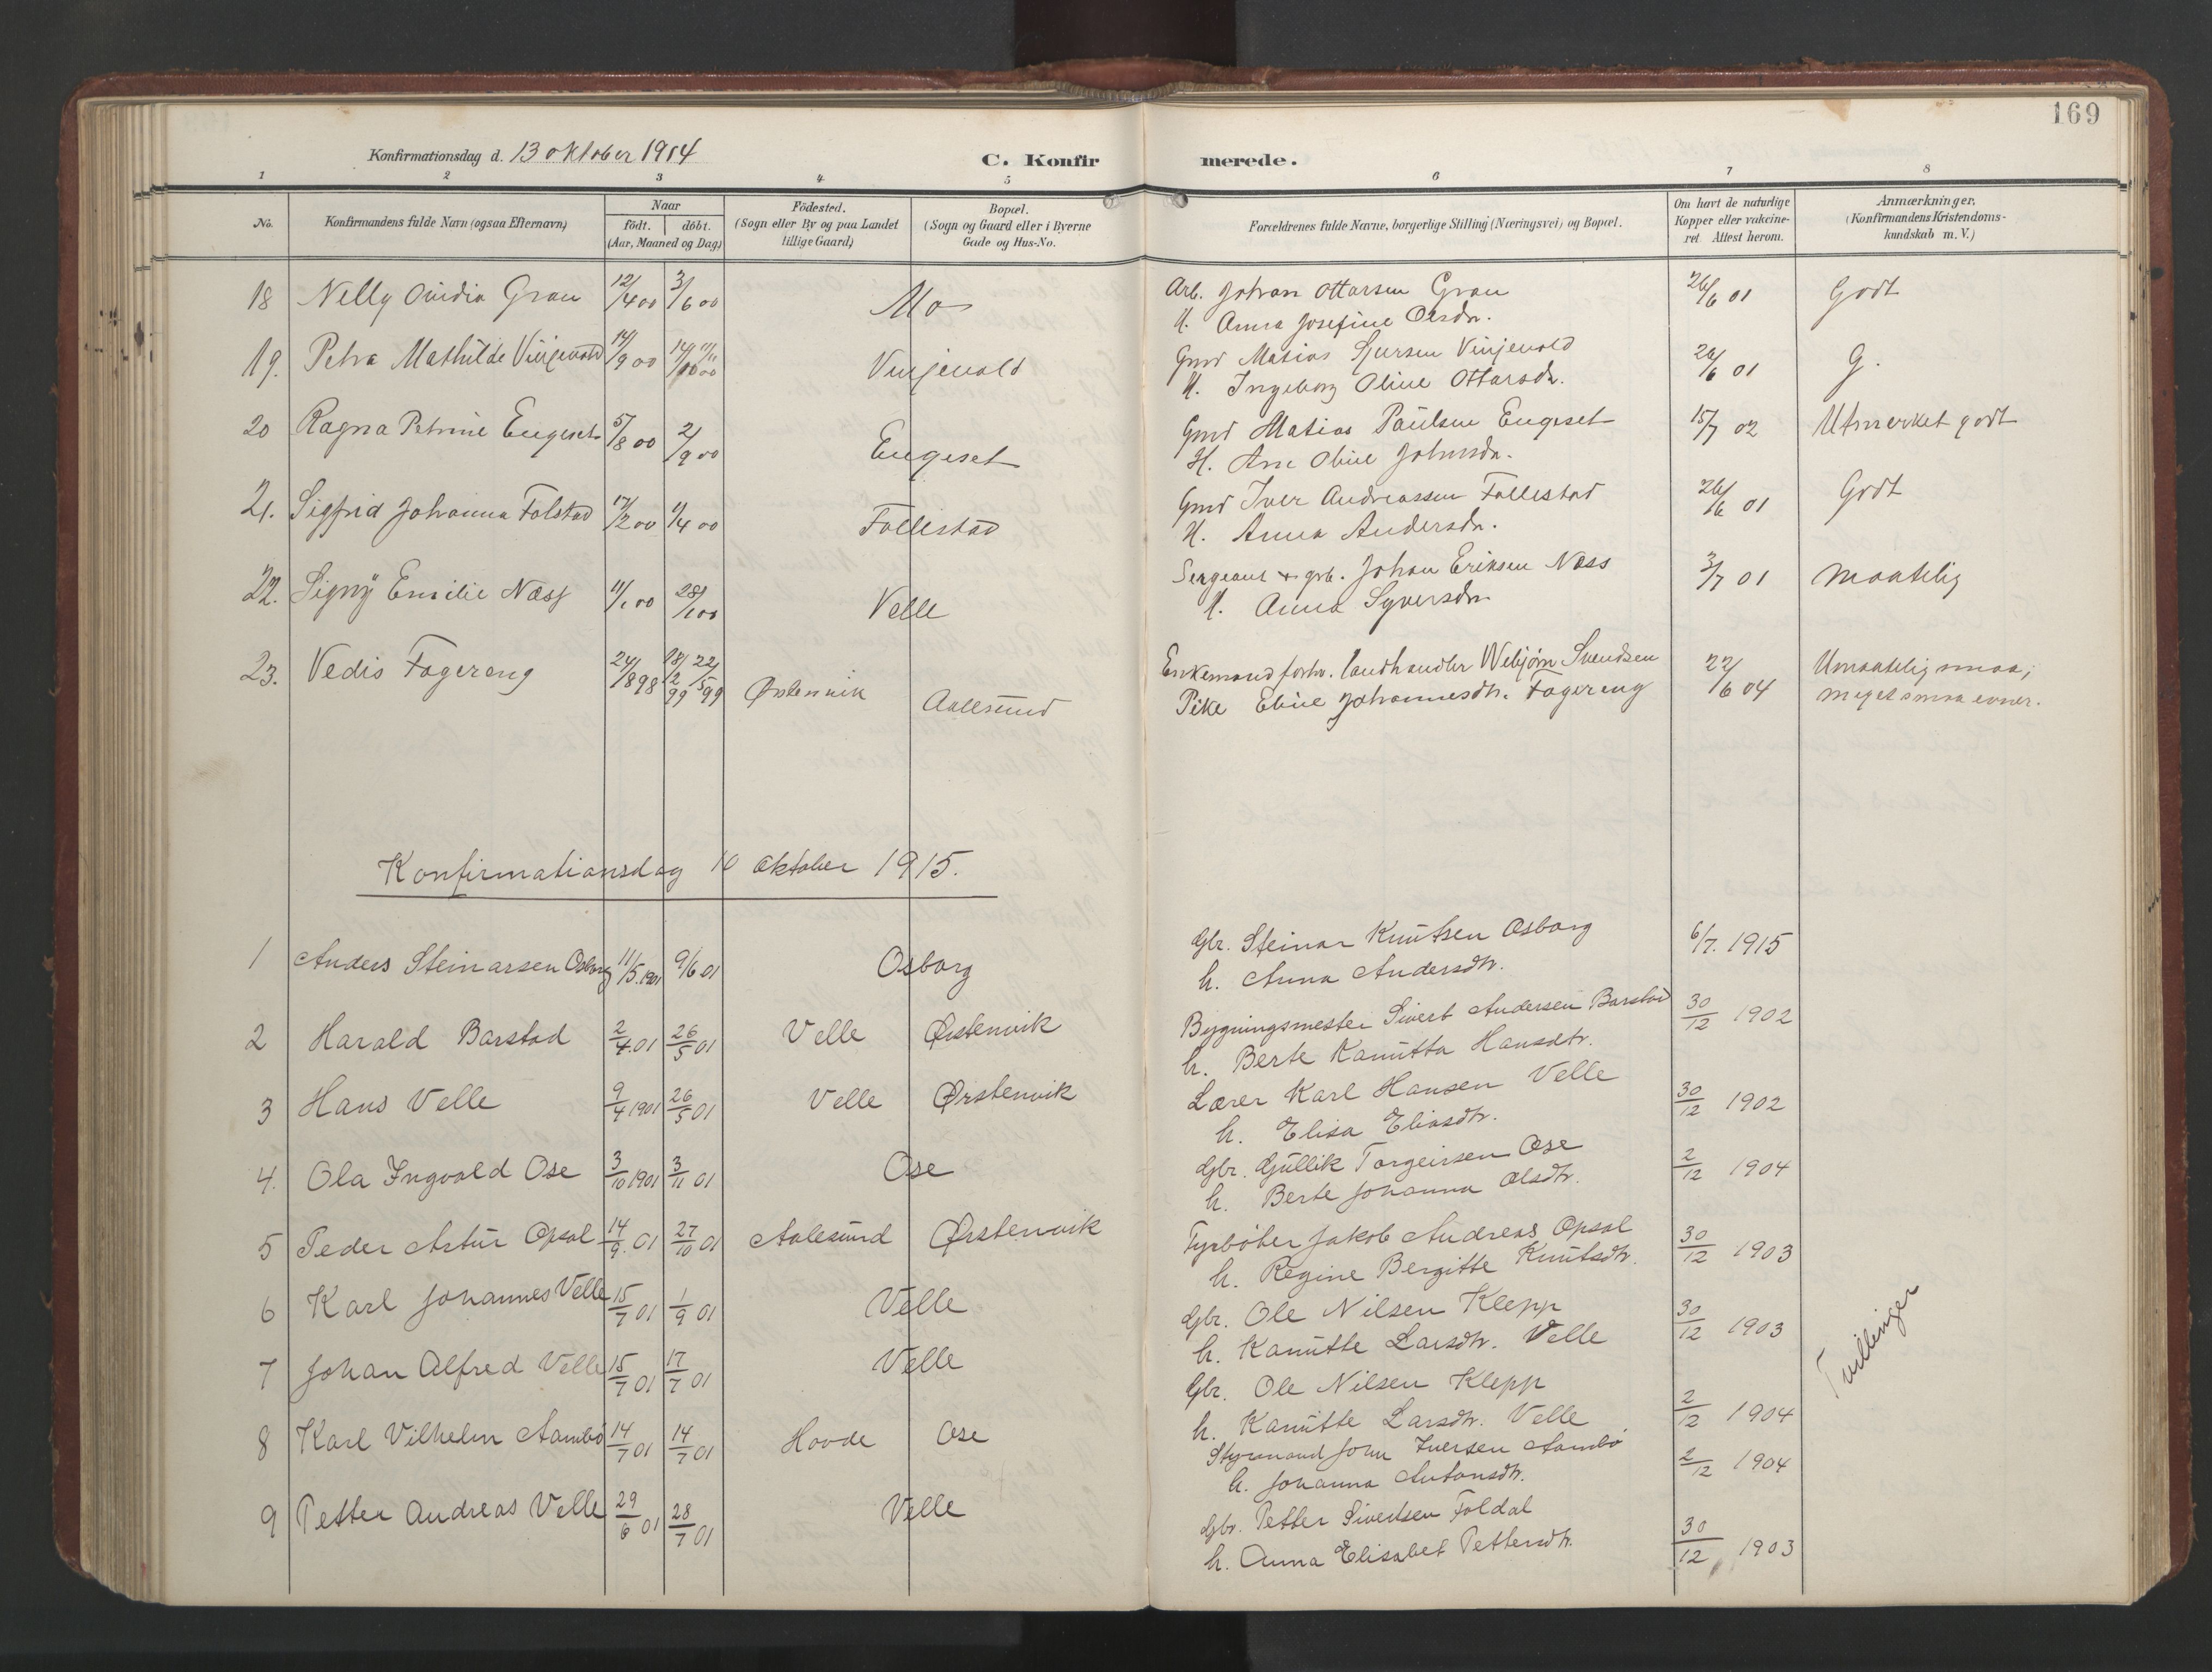 169
Konfirmationsdag d. 13 oktober 1914
C. Konfirmerede.
1 2 3 4 5 6 7 8
No.
Konfirmandens fulde Navn (ogsaa Efternavn)
Naar
födt. döbt.
(Aar, Maaned og Dag)
Födested.
(Sogn eller By og paa Landet
tillige Gaard)
Bopæl.
(Sogn og Gaard eller i Byerne
Gade og Hus-No.
Forældrenes fulde Navne, borgerlige Stilling (Næringsvei) og Bopæl.
Om havt de naturlige
Kopper eller vakcine-
ret. Attest herom.
Anmærkninger.
(Konfirmandens Kristendoms-
kundskab m. V.)
18 Nelly Ovidia Grau 12/4 00 3/6 00 Mo Arb. Johan Ottarsen Grau 26/6 01 Godt
H. Anna Josefine Olsdr.
19. Petra Mathilde Vinjevold 14/9 00 Vinjevold Gmd Matias Sjursen Vinjevold 26/6 01 G.
H. Ingeborg Oline Ottarsdr.
20 Ragna Petrine Engeset 5/8 00 2/9 00 Engeset Gmd Matias Paulsen Engeset 15/7 02 Utmerket godt
H. Ane Oline Johnsdr.
21. Sigfrid Johanna Folstad 17/2 00 1/4 00 Follestad Gmd Iver Andreassen Follestad 26/6 01 Godt
H. Anna Andersdr.
22. Signy Emilie Næss 11/1 00 28/1 00 Velle Sergeant & grb. Johan Eriksen Næss 3/7 01 Maatelig
H. Anna Syversdr.
23. Vedis Fagereng 24/8 98 18/2 99 22/5 99 Ørstenvik Aalesund Enkemand forhv. landhandler Webjørn Svendsen 22/6 04 Umaatelig smaa;
Pike Eline Johannesdtr. Fagereng meget smaa evner.
Konfirmationsdag 10 oktober 1915.
1 Anders Steinarsen Osborg 11/5. 1901 9/6 01 Osborg Gbr. Steinar Knutsen Osborg 6/7. 1915
h. Anna Andersdtr.
2 Harald Barstad 2/4. 01 26/5 01 Velle Ørstenvik Bygningsmester Sivert Andersen Barstad 30/12 1902
h. Berte Kanutta Hansdtr.
3 Hans Velle 9/4 1901 26/5 01 Velle Ørstenvik Lærer Karl Hansen Velle 30/12 1902
h. Elisa Eliasdtr.
4. Ola Ingvald Ose 3/10 1901 3/11 01 Ose Gbr. Gullik Torgeirsen Ose 2/12 1904
h. Berte Johanna Olsdtr.
5 Peder Artur Opsal 14/9. 01 27/10 01 Aalesund Ørstenvik Fyrbøter Jakob Andreas Opsal 30/12 1903
h. Regine Bergitte Knutsdtr.
6 Karl Johannes Velle 15/7 01 1/9 01 Velle Gbr. Ole Nilsen Klepp 30/12 1903
h. Kanutte Larsdtr. Velle
Tvillinger
7 Johan Alfred Velle 15/7 01 17/7 01 Velle Gbr. Ole Nilsen Klepp 2/12 1904
h. Kanutte Larsdtr. Velle
8 Karl Vilhelm Aambø 14/7 01 14/7 01 Hovde Ose Styrmand John Iversen Aambø 2/12 1904
h. Johanna Antonsdtr.
9 Petter Andreas Velle 29/6 01 28/7 01 Velle Gbr. Petter Sivertsen Foldal 30/12 1903
h. Anna Elisabet Pettersdtr.